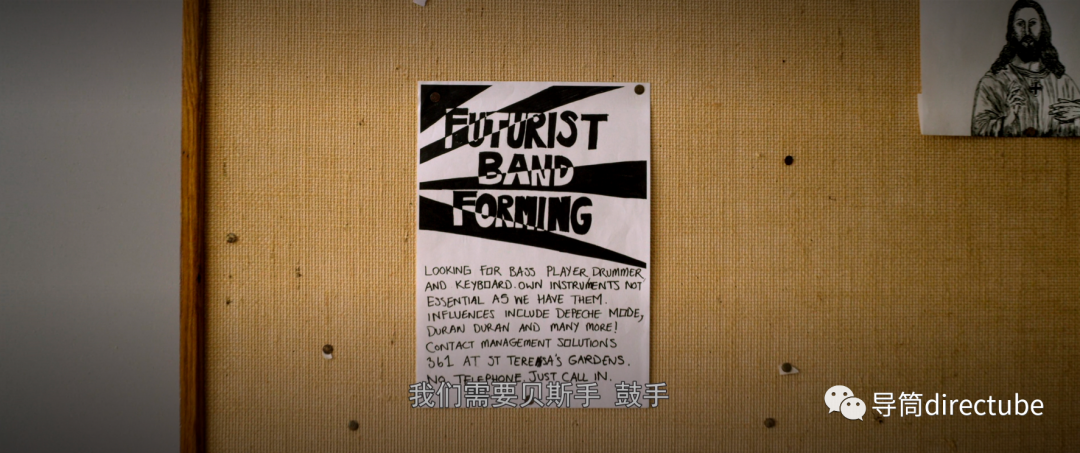 FUTURIST
BAND
FORMING
LOOKING FOR BASS PLAYER, DRUMMER,
AND KEYBOARD. OWN INSTRUMENTS NOT
ESSENTIAL AS WE HAVE THEM.
INFLUENCES INCLUDE DEPECHE MODE,
DURAN DURAN AND MANY MORE!
CONTACT MANAGEMENT SOLUTIONS
361 AT ST TERESA'S GARDENS.
NO TELEPHONE JUST CALL IN.
我们需要贝斯手 鼓手
导筒directube